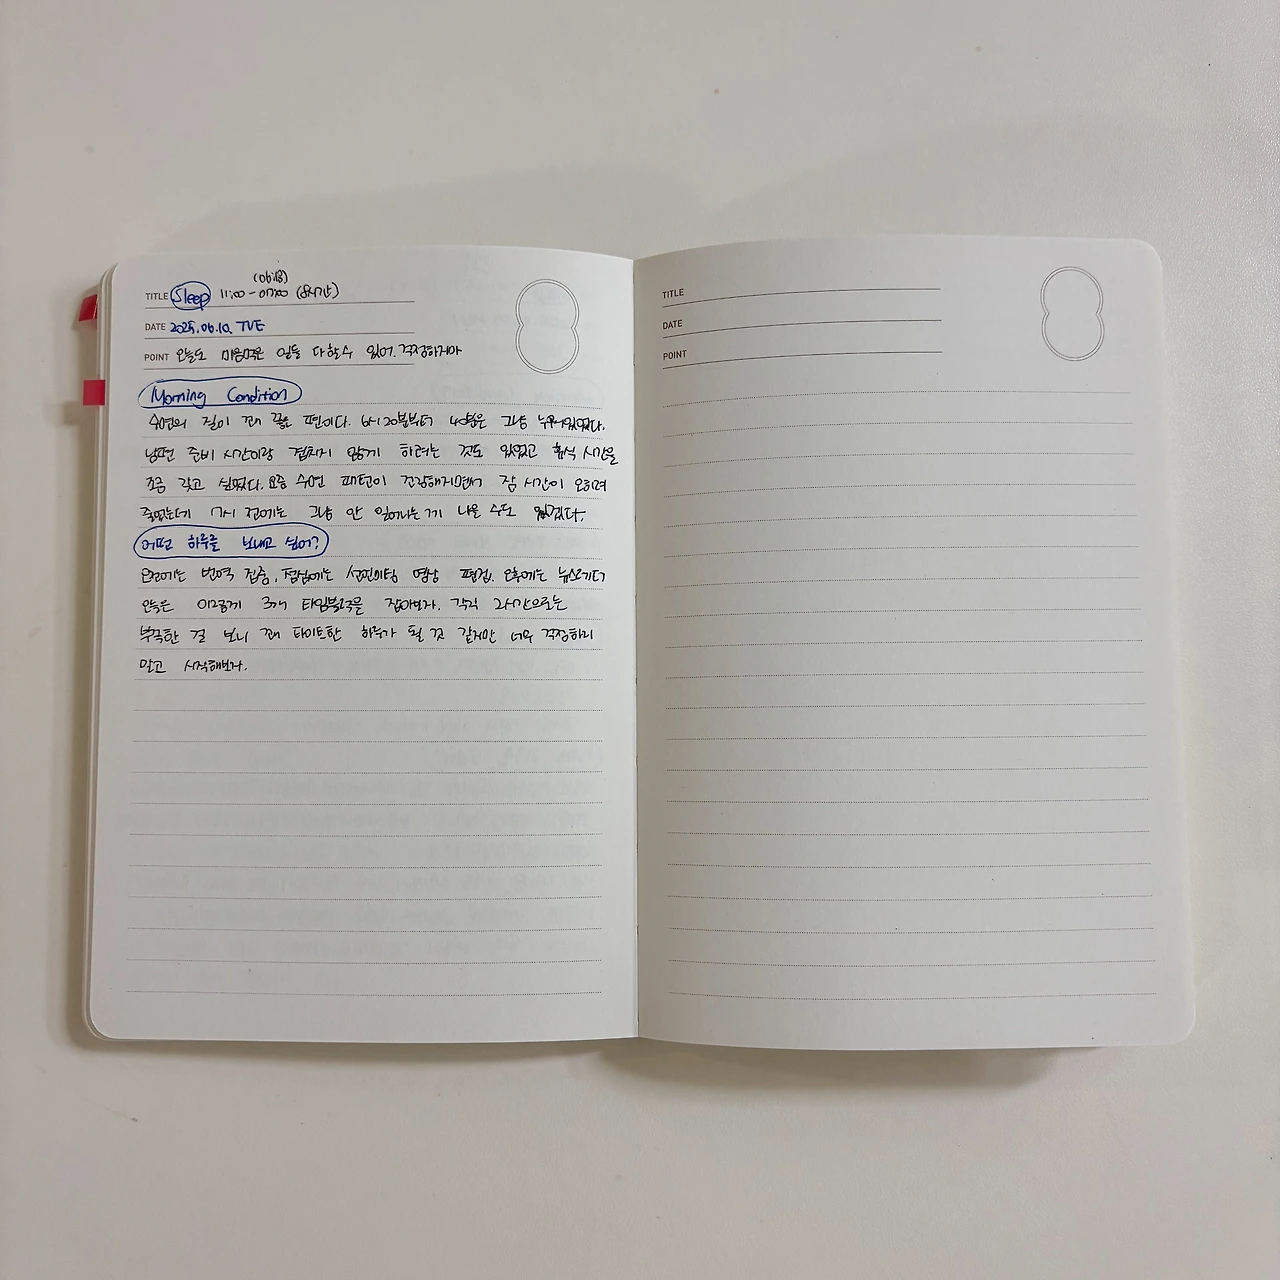 (06:18)
TITLE Sleep 11:00 - 07:00 (8시간)
DATE 2025.06.10. TUE
POINT 오늘도 마음먹은 일들 다 할 수 있어. 걱정하지마
Morning Condition
수면의 질이 꽤 좋은 편이다. 6시 20분부터 40분은 그냥 누워있었다.
남편 준비 시간이랑 겹치지 않게 하려는 것도 있었고 휴식 시간을
조금 갖고 싶었다. 요즘 수면 패턴이 건강해지면서 잠 시간이 오히려
줄었는데 7시 전에는 그냥 안 일어나는 게 나을 수도 있겠다.
어떤 하루를 보내고 싶어?
오전에는 번역 집중, 점심에는 영상 편집. 오후에는 뉴스레터
오늘은 이렇게 3개 타임블럭을 잡아보자. 각각 2시간으로는
부족한 걸 보니 꽤 타이트한 하루가 될 것 같지만 너무 걱정하지
말고 시작해보자.
TITLE
DATE
POINT